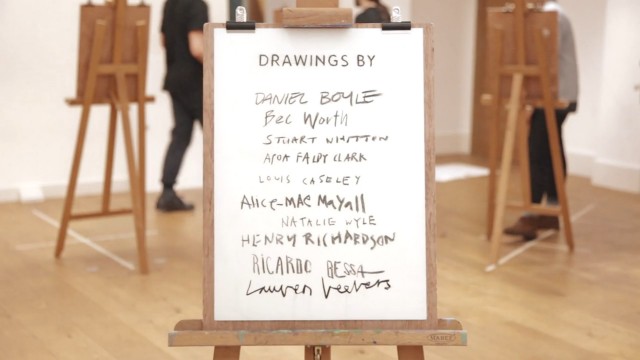 DRAWINGS BY
DANIEL BOYLE
Bec Worth
STUART WHITTON
LOUIS CASELEY
ALICE-MAE MAYALL
NATALIE WYLE
HENRY RICHARDSON
RICARDO BESSA
Lauren Veevers
MABEF